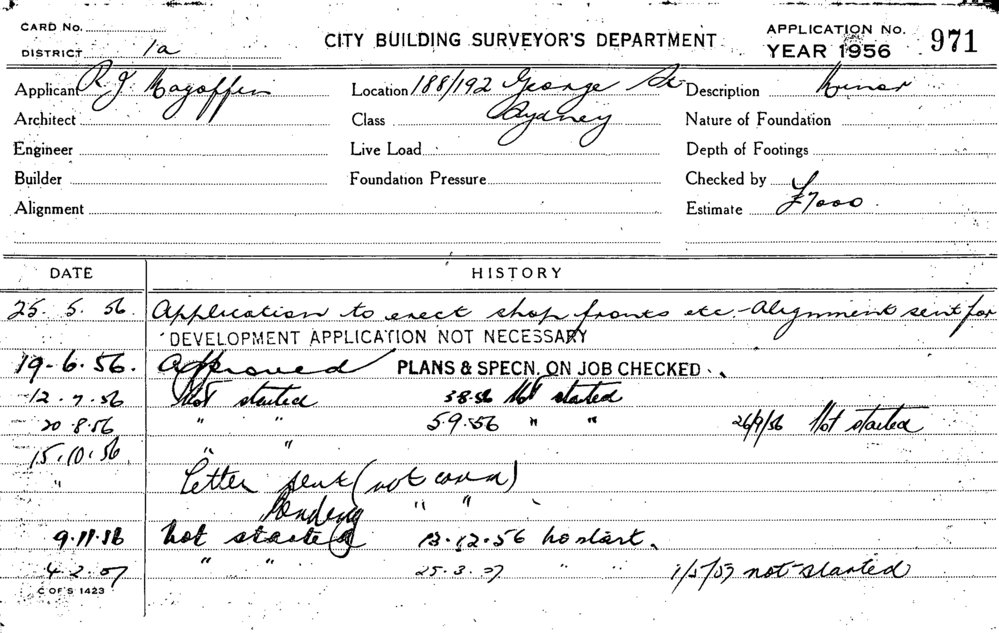 CARD No. APPLICATION No. 971
DISTRICT 1a CITY BUILDING SURVEYOR'S DEPARTMENT YEAR 1956
Applicant R J Magoffin Location 188/192 George St Description Minor
Architect Class Sydney Nature of Foundation
Engineer Live Load Depth of Footings
Builder Foundation Pressure Checked by
Alignment Estimate £7000
DATE HISTORY
25. 5. 56. Application to erect shop fronts etc - Alignment sent for
DEVELOPMENT APPLICATION NOT NECESSARY
19-6.56. Approved PLANS & SPECN. ON JOB CHECKED
12.7.56 Not started 3.8.56 Not started
20.8.56 " " 5.9.56 " " 26/9/56 Not started
15.10.56 " "
" Letter sent (not comm)
Pending " "
9.11.56 Not started 13.12.56 no start.
4.2.57 " " 25.3.57 " " 1/5/57 not started
C OF S 1423